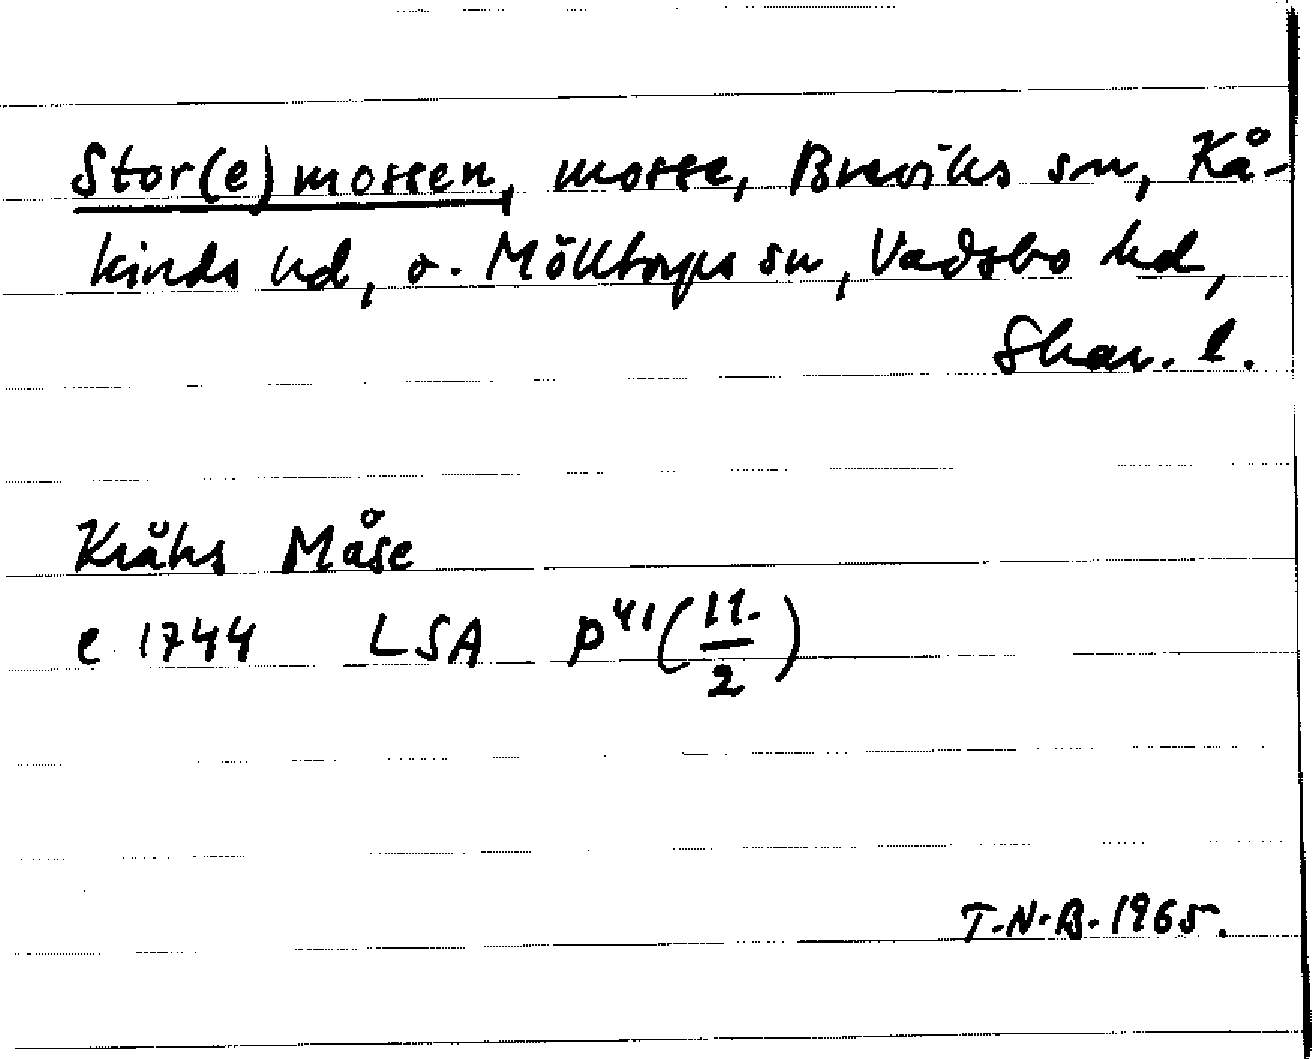 Stor(e)mossen, mosse, Breviks sn, Kå-
kinds hd, o. Mölltorps sn, Vadsbo hd,
Skar. l.
Kråks Måse
c 1744 LSA P⁴¹(11./2)
T.N.B. 1965.